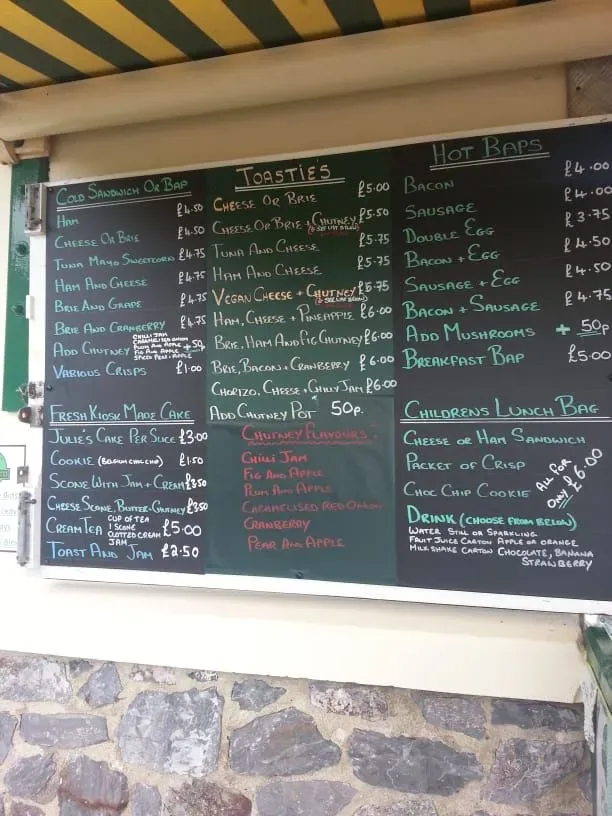 COLD SANDWICH OR BAP
HAM £4.50
CHEESE OR BRIE £4.50
TUNA MAYO SWEETCORN £4.75
HAM AND CHEESE £4.75
BRIE AND GRAPE £4.75
BRIE AND CRANBERRY £4.75
ADD CHUTNEY + 50p
CHILLI JAM
CARAMELISED ONION
PLUM AND APPLE
FIG AND APPLE
SPICED PEAR + APPLE
VARIOUS CRISPS £1.00
FRESH KIOSK MADE CAKE
JULIE'S CAKE PER SLICE £3.00
COOKIE (BELGIUM CHOC CHIP) £1.50
SCONE WITH JAM + CREAM £3.50
CHEESE SCONE, BUTTER + CHUTNEY £3.50
CREAM TEA £5.00
CUP OF TEA
1 SCONE
CLOTTED CREAM
JAM
TOAST AND JAM £2.50
TOASTIE'S
CHEESE OR BRIE £5.00
CHEESE OR BRIE + CHUTNEY £5.50
(SEE LIST BELOW)
TUNA AND CHEESE £5.75
HAM AND CHEESE £5.75
VEGAN CHEESE + CHUTNEY £5.75
(SEE LIST BELOW)
HAM, CHEESE + PINEAPPLE £6.00
BRIE, HAM AND FIG CHUTNEY £6.00
BRIE, BACON + CRANBERRY £6.00
CHORIZO, CHEESE + CHILLI JAM £6.00
ADD CHUTNEY POT 50p.
CHUTNEY FLAVOURS:
CHILLI JAM
FIG AND APPLE
PLUM AND APPLE
CARAMELISED RED ONION
CRANBERRY
PEAR AND APPLE
HOT BAPS
BACON £4.00
SAUSAGE £4.00
DOUBLE EGG £3.75
BACON + EGG £4.50
SAUSAGE + EGG £4.50
BACON + SAUSAGE £4.75
ADD MUSHROOMS + 50p
BREAKFAST BAP £5.00
CHILDRENS LUNCH BAG
CHEESE OR HAM SANDWICH
PACKET OF CRISP
CHOC CHIP COOKIE
ALL FOR
ONLY £6.00
DRINK (CHOOSE FROM BELOW)
WATER STILL OR SPARKLING
FRUIT JUICE CARTON APPLE OR ORANGE
MILKSHAKE CARTON CHOCOLATE, BANANA
STRAWBERRY